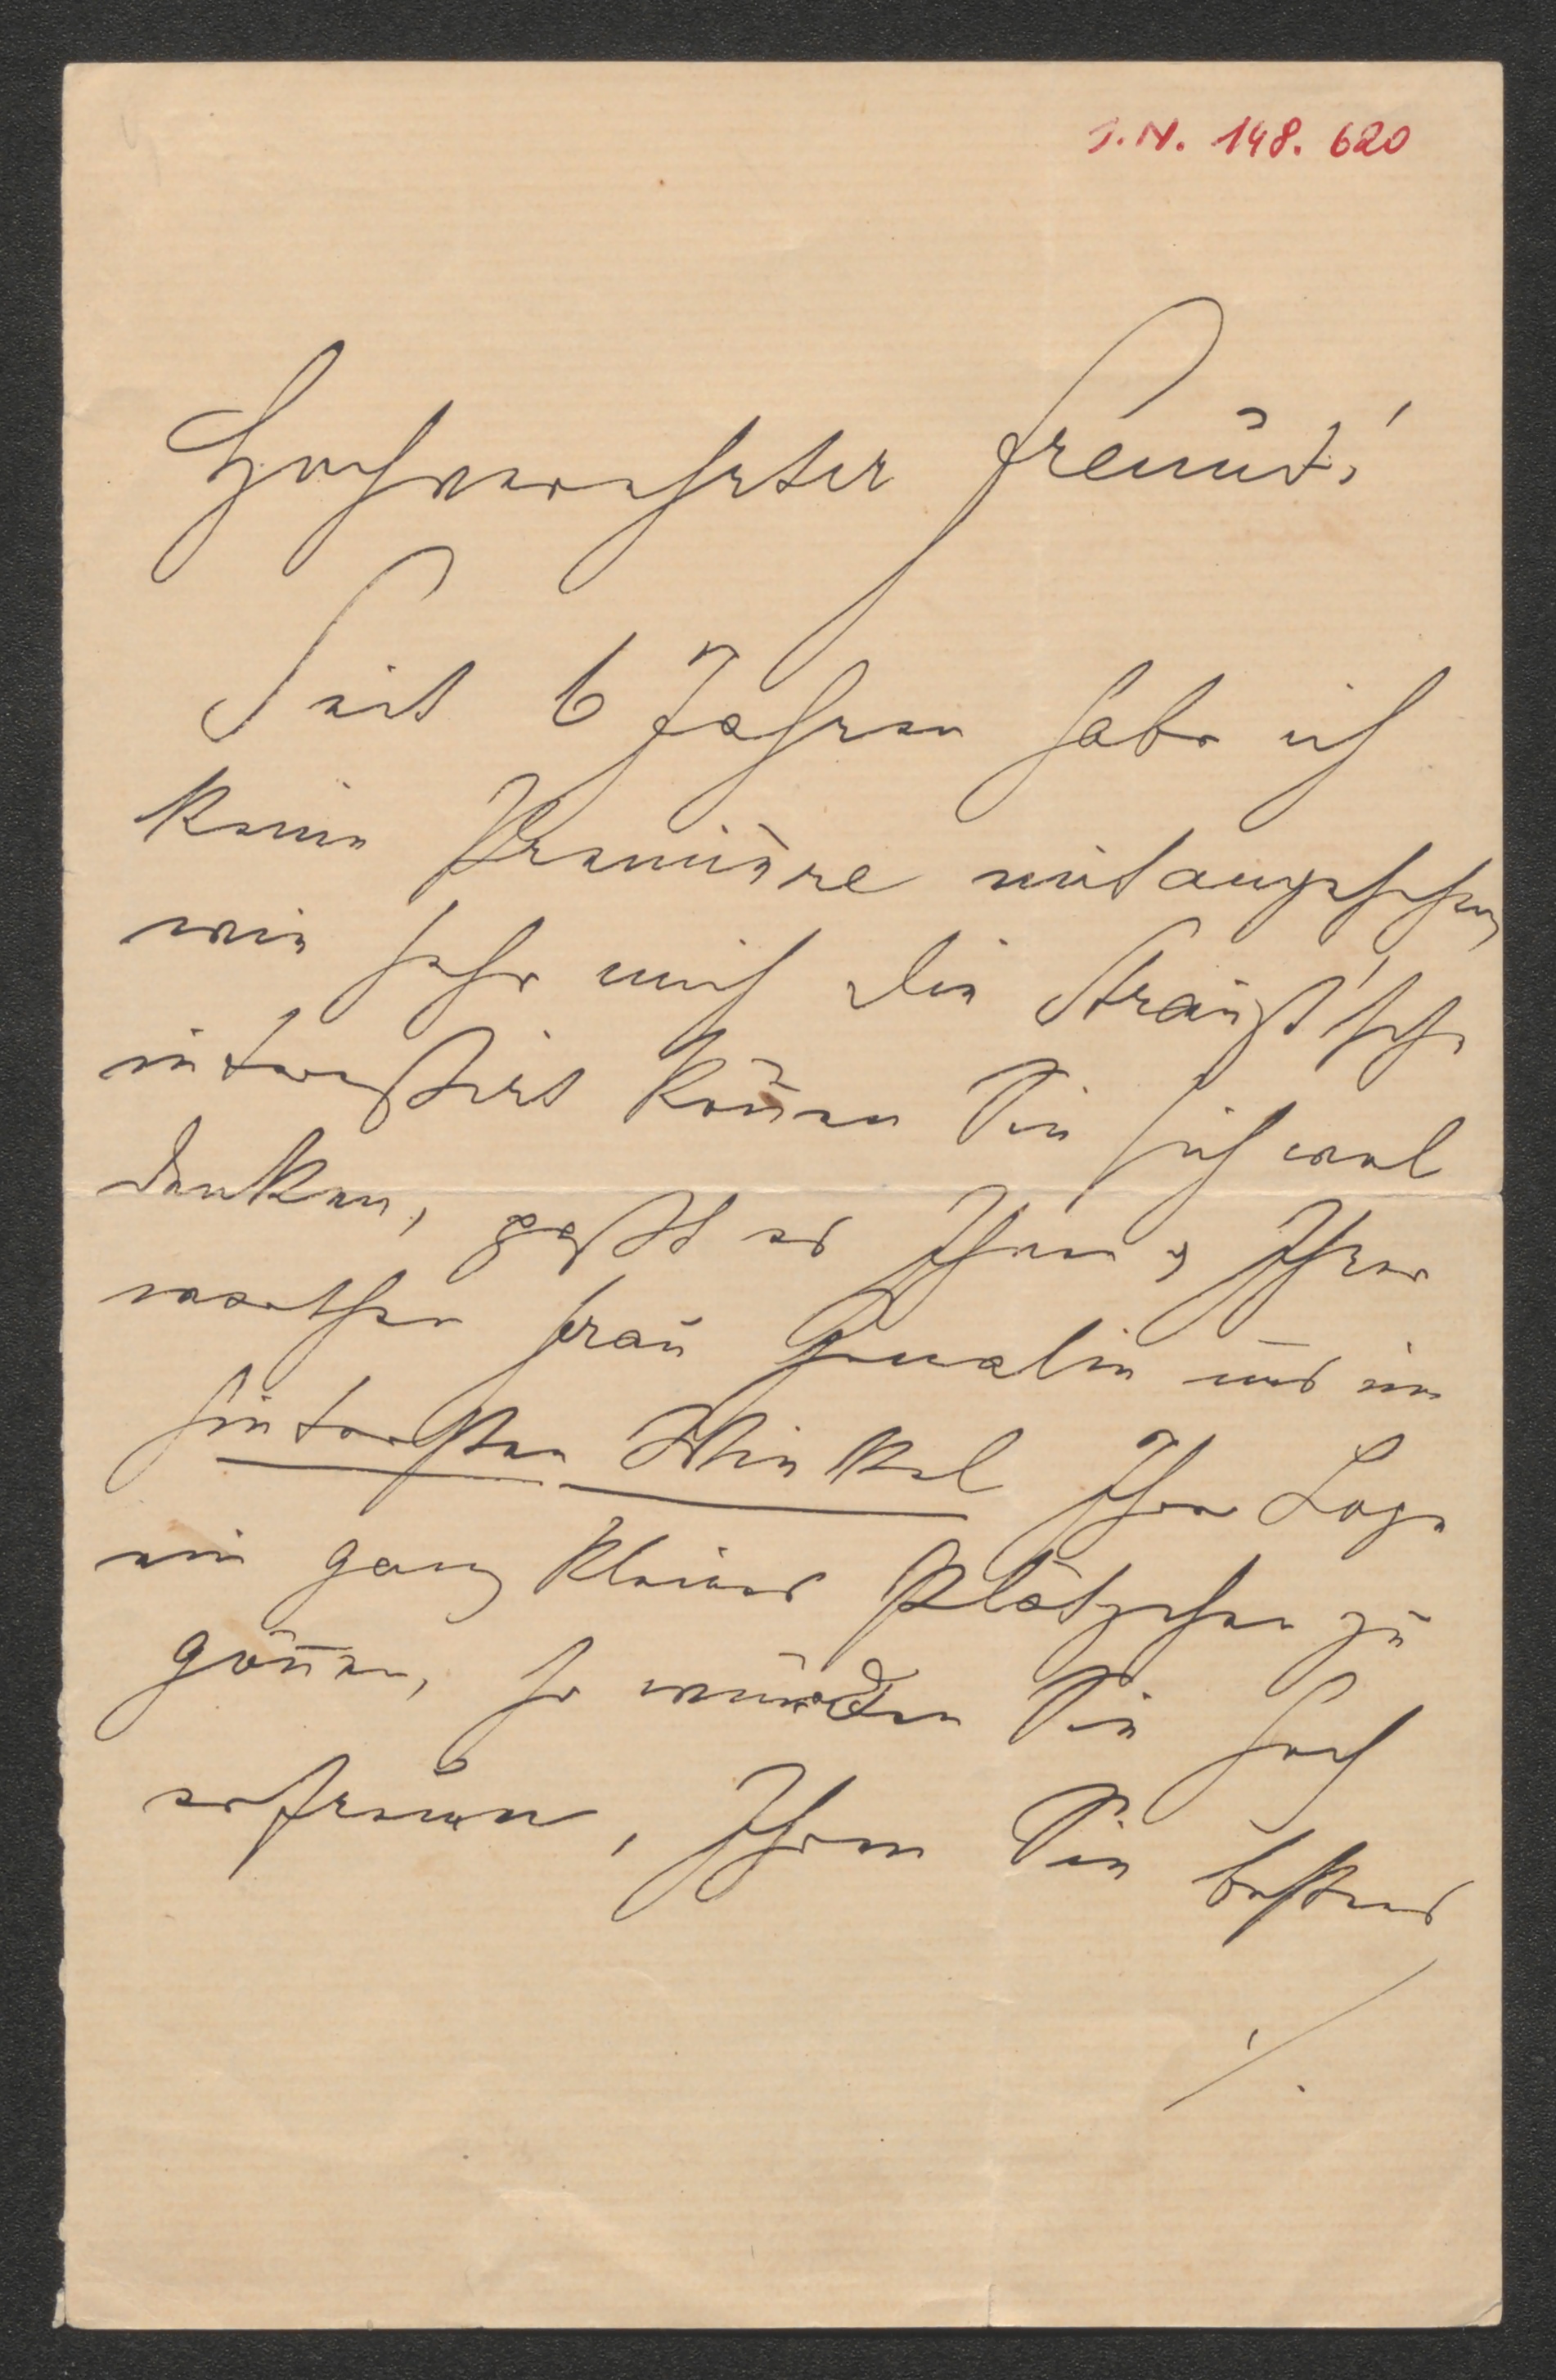 J.N. 148.620
Hochverehrter Freund!
Seit 6 Jahren habe ich
keine Première mitangesehen
wie sehr mich die Strauß'sche
interessirt können Sie sich wol
denken, paßt es Ihnen & Ihrer
werthen Frau Gemalin mir im
hintersten Winkel Ihrer Loge
ein ganz kleines Plätzchen zu
gönnen, so würden Sie hoch
erfreuen, Ihren Sie bestens
./.